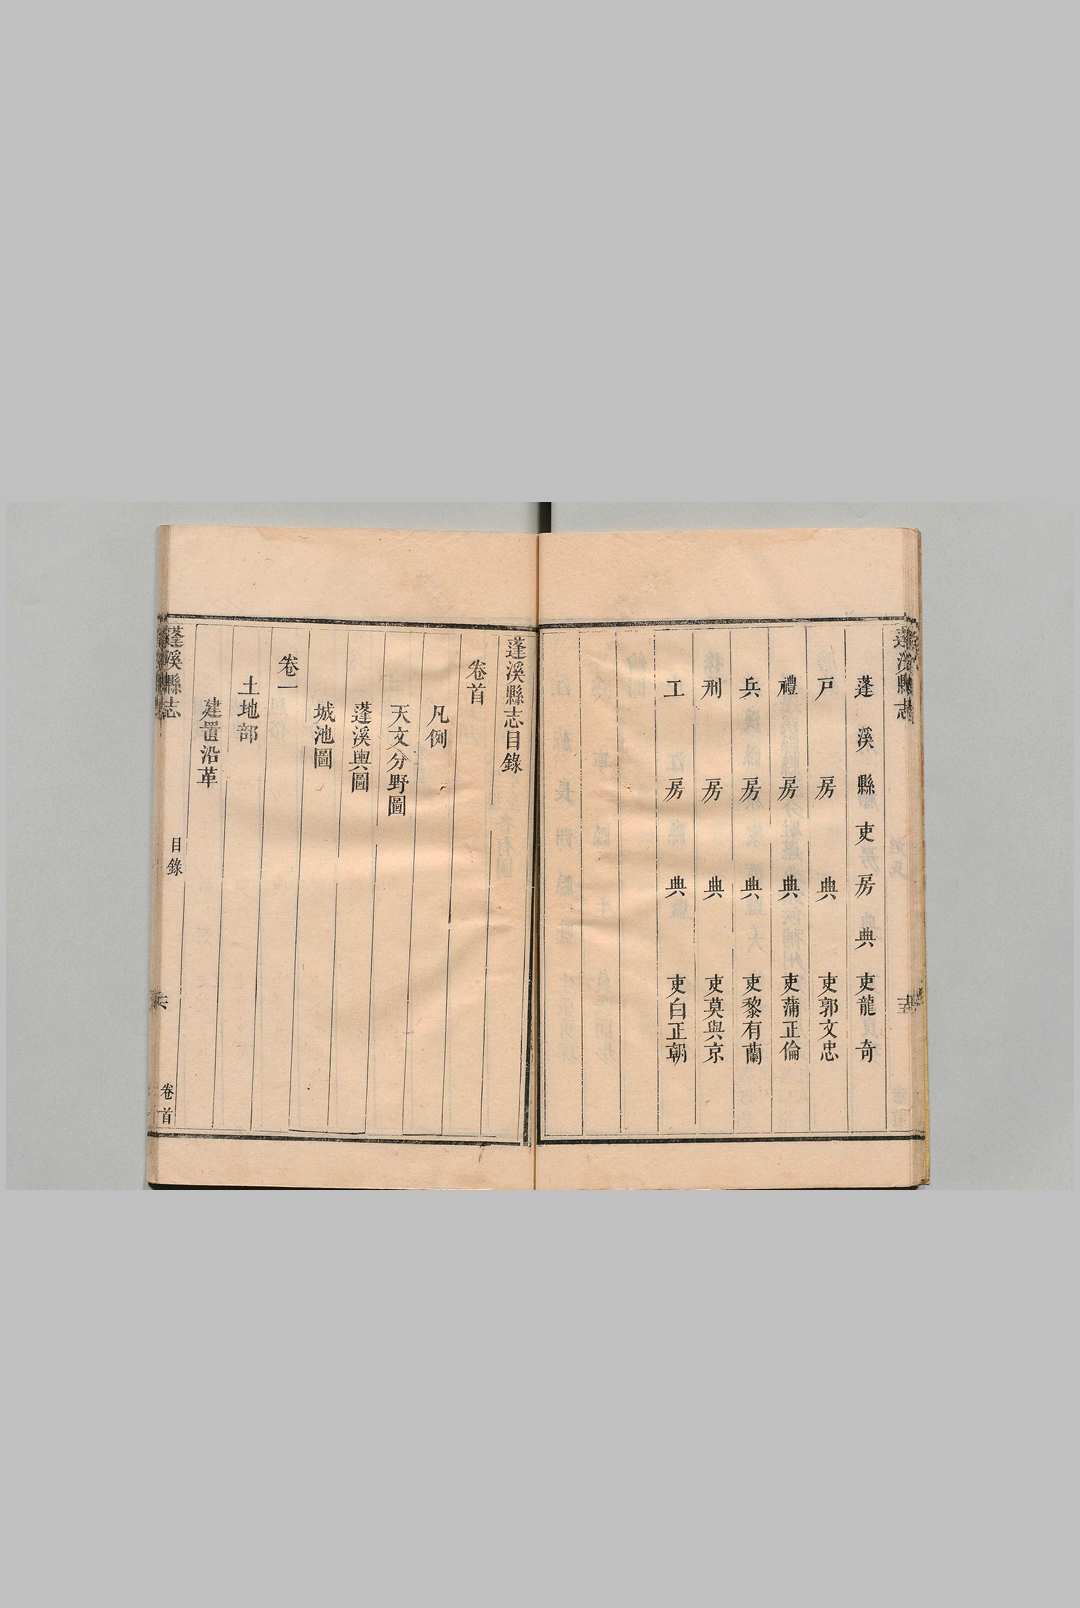 蓬溪縣吏房典吏龍奇
戶房典吏郭文忠
禮房典吏蒲正倫
兵房典吏黎有蘭
刑房典吏莫與京
工房典吏白正朝
蓬溪縣志目錄
卷首
凡例
天文分野圖
蓬溪輿圖
城池圖
卷一
土地部
建置沿革
蓬溪縣志
目錄
卷首